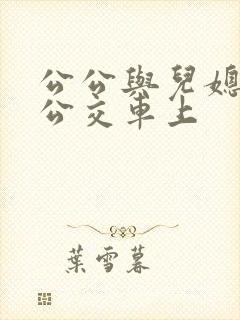 公公與兒媳
公交車上
葉雪暮